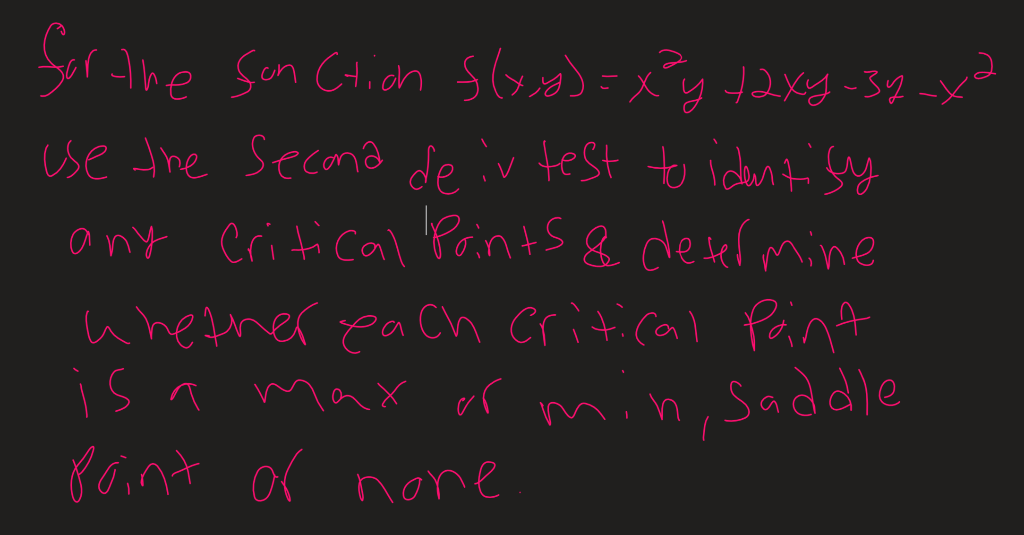 for the fonction f(x,y) = x²y + 2xy - 3y - x²
use the second deriv test to identify
any critical points & determine
whether each critical point
is a max or min, saddle
point or none.